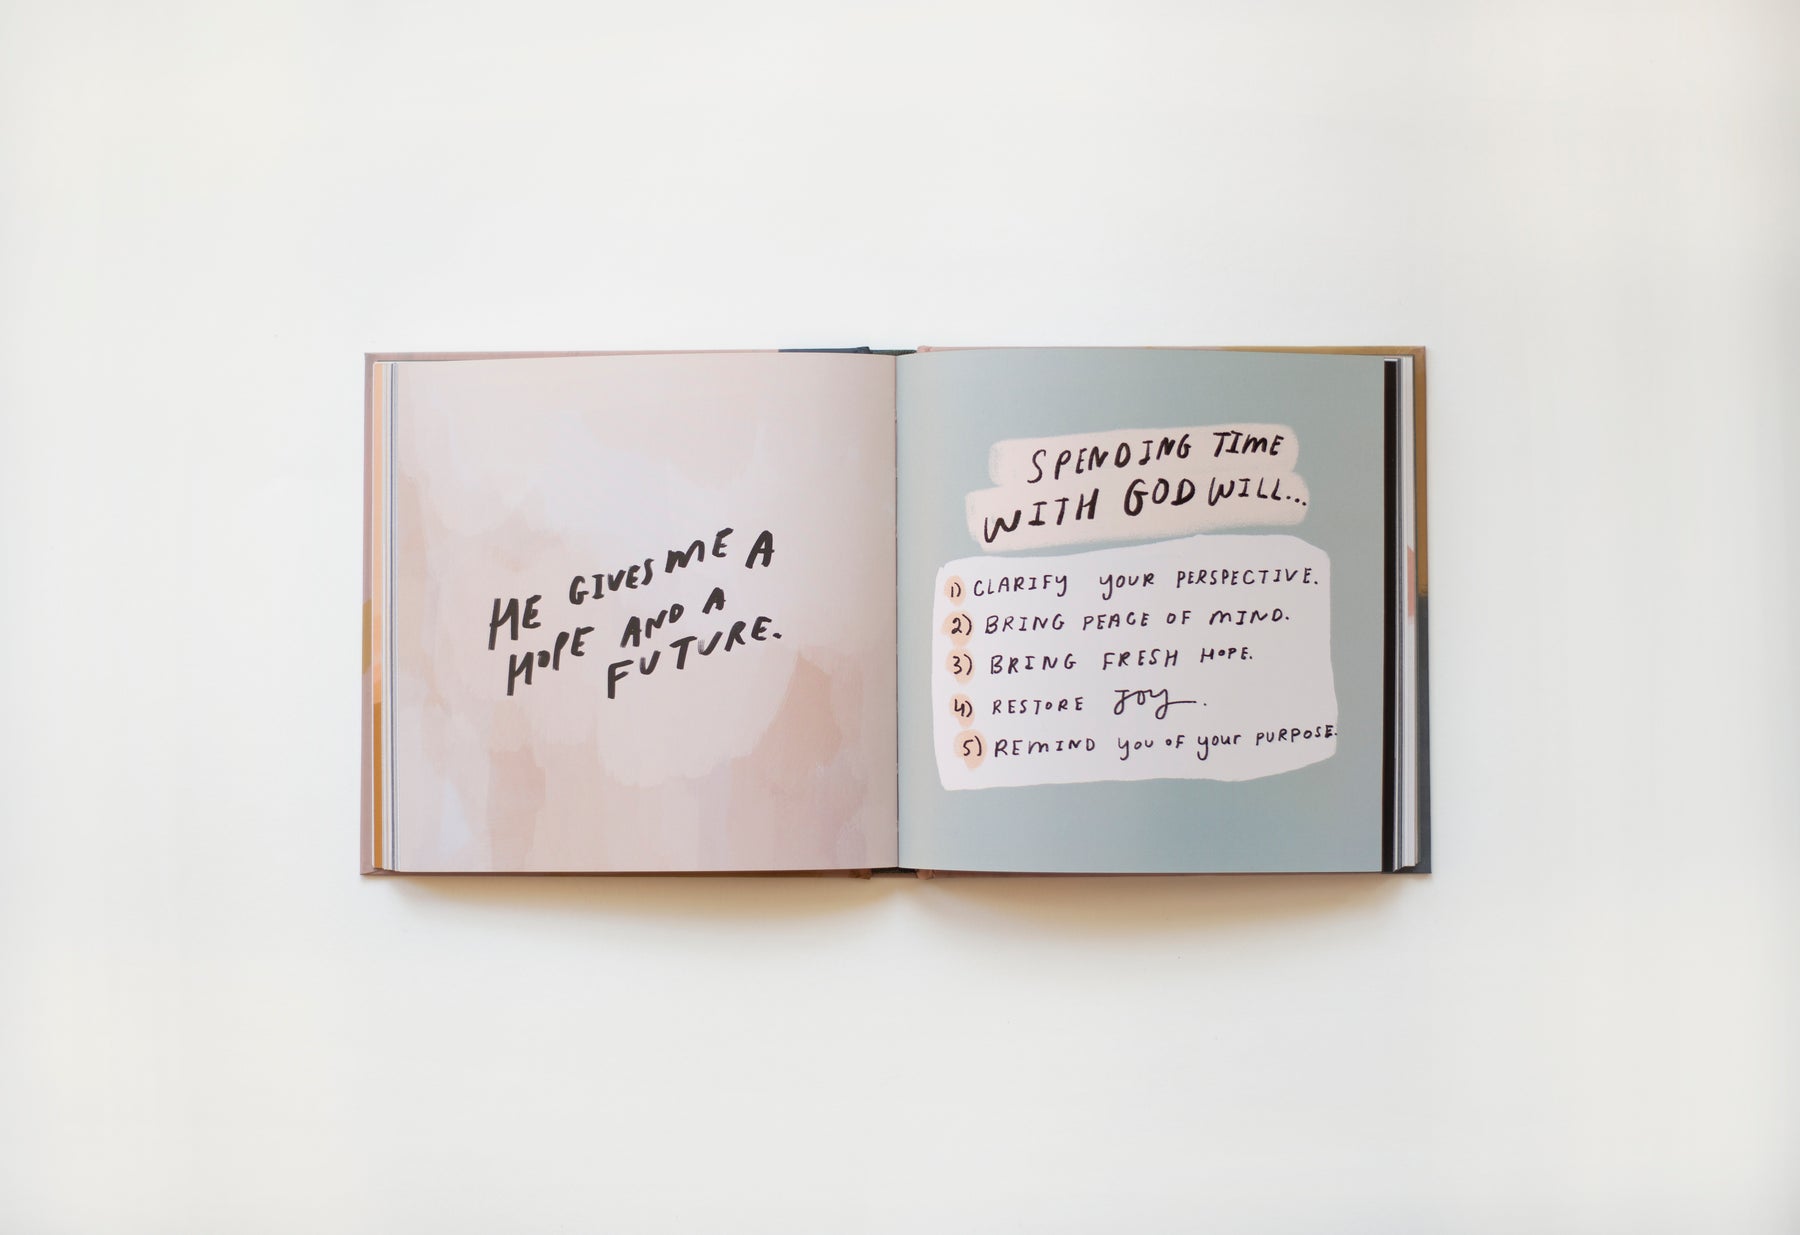 HE GIVES ME A
HOPE AND A
FUTURE.
SPENDING TIME
WITH GOD WILL...
1) CLARIFY YOUR PERSPECTIVE.
2) BRING PEACE OF MIND.
3) BRING FRESH HOPE.
4) RESTORE JOY.
5) REMIND YOU OF YOUR PURPOSE.